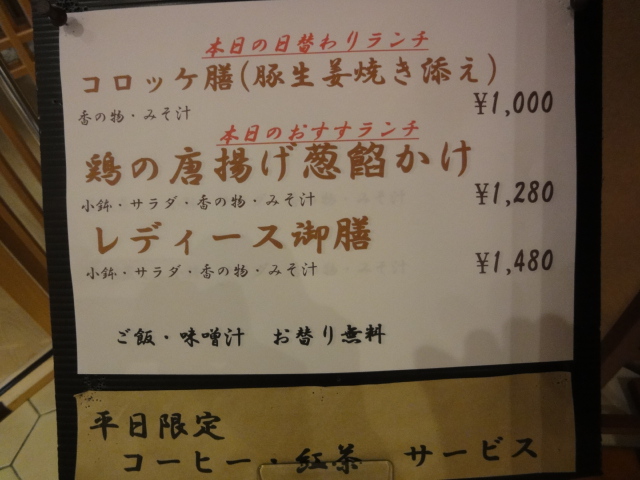 本日の日替わりランチ
コロッケ膳(豚生姜焼き添え)
香の物・みそ汁 ¥1,000
本日のおすすランチ
鶏の唐揚げ葱餡かけ
小鉢・サラダ・香の物・みそ汁 ¥1,280
レディース御膳
小鉢・サラダ・香の物・みそ汁 ¥1,480
ご飯・味噌汁 お替り無料
平日限定
コーヒー・紅茶 サービス